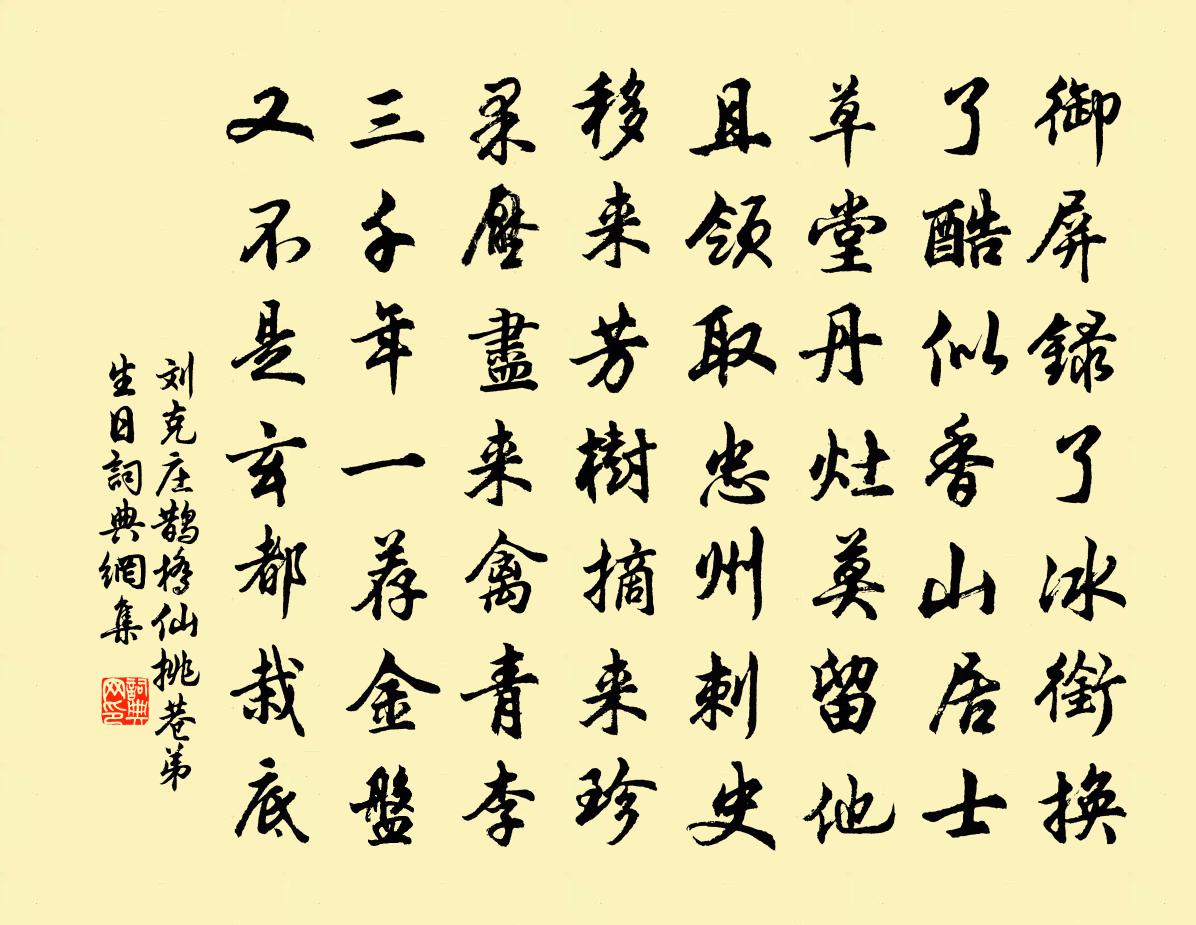 御屏録了冰銜換
了酷似香山居士
草堂丹灶莫留他
且領取忠州刺史
移来芳樹摘来珍
果壓盡来禽青李
三千年一荐金盤
又不是玄都栽底
刘克庄鹊橋仙桃巷弟
生日詞典網集
詞典
网印